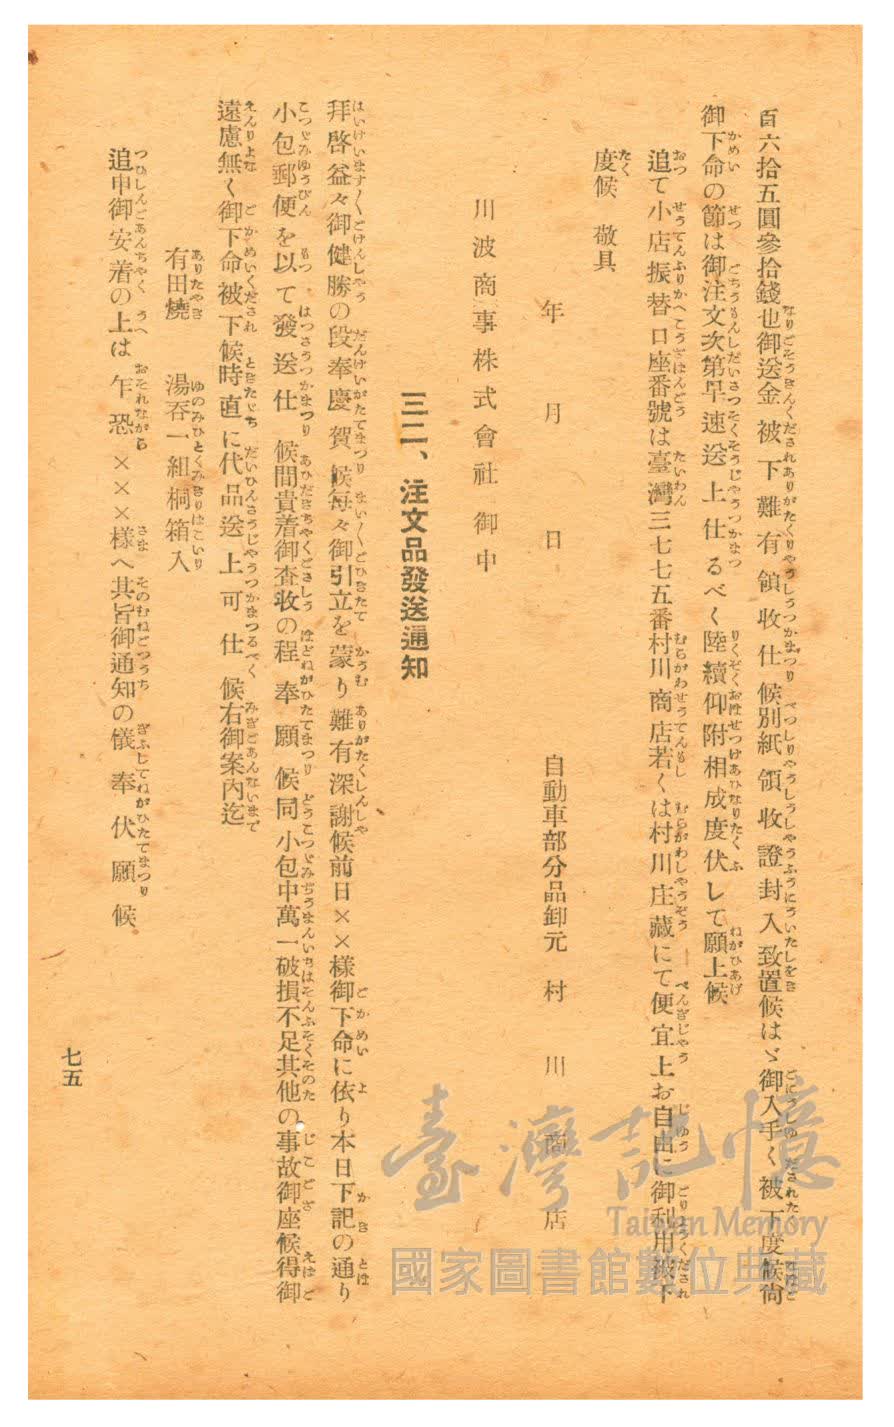 百六拾五圓參拾錢也御送金被下難有領收仕候別紙領收證封入致置候はゞ御入手く被下度候尙
御下命の節は御注文次第早速送上仕るべく陸續仰附相成度伏して願上候
追て小店振替口座番號は臺灣三七七五番村川商店若くは村川庄藏にて便宜上お自由に御利用被下
度候 敬具
年 月 日 自動車部分品卸元 村川商店
川波商事株式會社御中
三二、注文品發送通知
拜啓益々御健勝の段奉慶賀候每々御引立を蒙り難有深謝候前日××樣御下命に依り本日下記の通り
小包郵便を以て發送仕候間貴着御査收の程奉願候同小包中萬一破損不足其他の事故御座候得御
遠慮無く御下命被下候時直に代品送上可仕候右御案內迄
有田燒 湯吞一組桐箱入
追申御安着の上は乍恐×××樣へ其旨御通知の儀奉伏願候
七五
臺灣記憶
Taiwan Memory
國家圖書館數位典藏